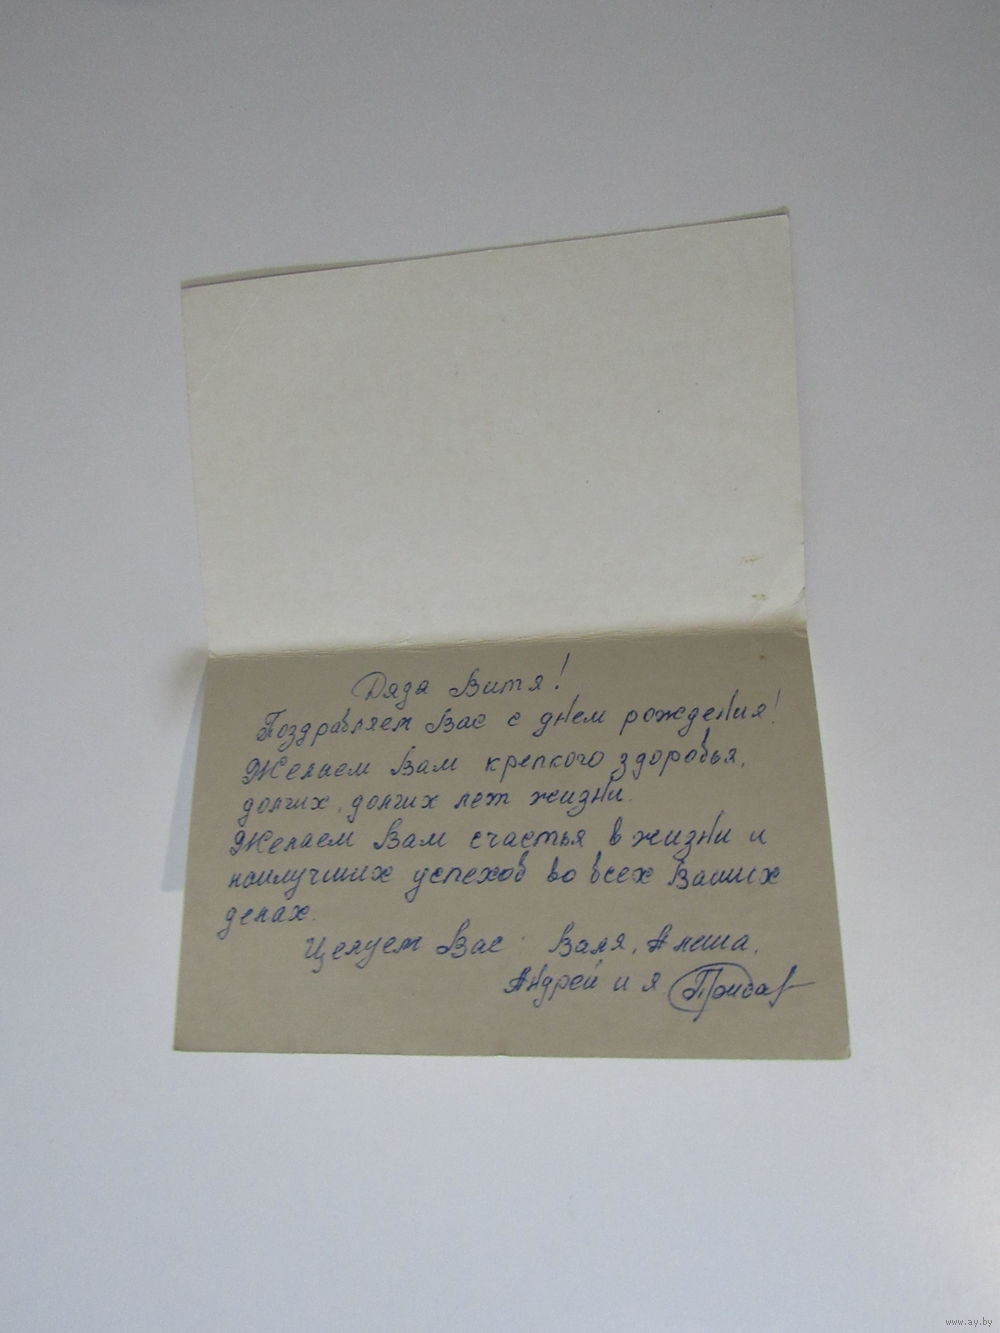 Дядя Витя!
Поздравляем Вас с днем рождения!
Желаем Вам крепкого здоровья,
долгих, долгих лет жизни.
Желаем Вам счастья в жизни и
наилучших успехов во всех Ваших
делах.
Целуем Вас Валя, Алеша,
Андрей и я
www.ay.by